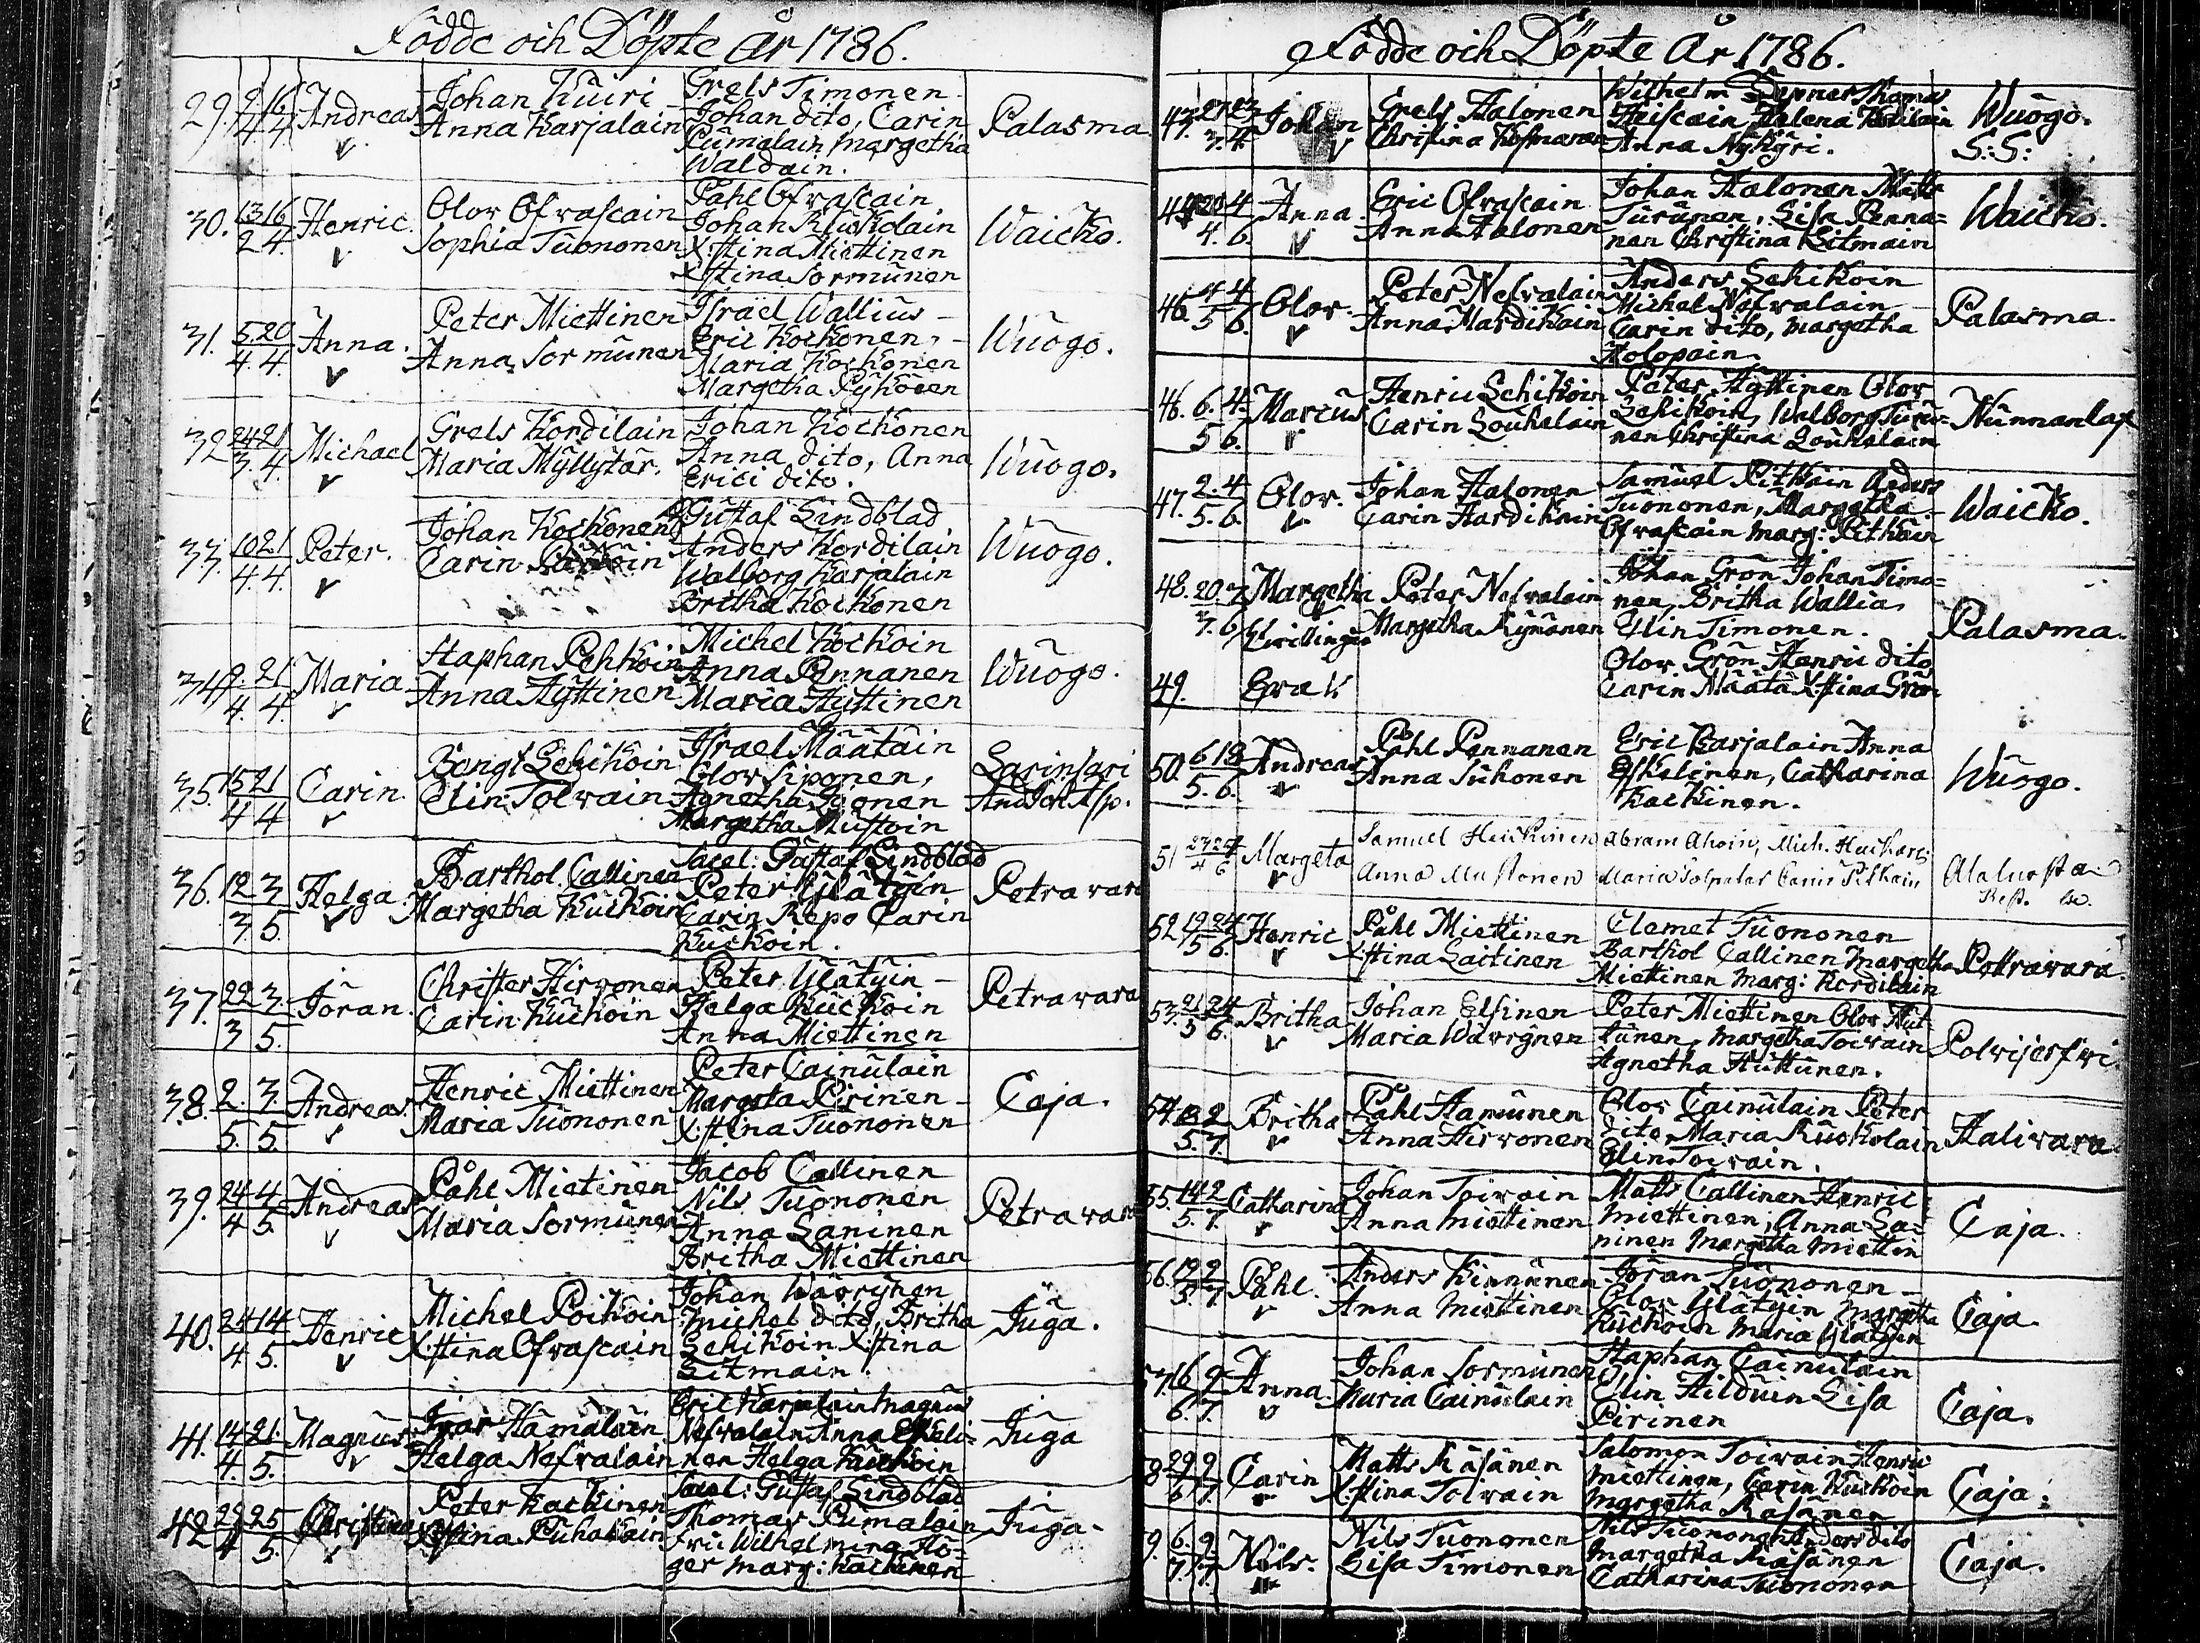 Födde och Döpte År 1786.
29. 9/4 16/4 Andreas Johan Kuiri Anna Karjalain Grels Timonen Johan dito, Carin Pumalain Margetha Waldain. Palasma
30. 13/2 16/4 Henric. Olov Ofvascain Sophia Tuononen Påhl Ofvascain Johan Ruokolain X:stina Miettinen X:stina Sormunen Waicko.
31. 5/4 20/4 Anna. Peter Miettinen Anna Sormunen Israel Wallius Eric Kockonen, Maria Kockonen Margetha Ryköen Wuogo.
32 24/3 21/4 Michael Grels Kordilain Maria Myllytär. Johan Kockonen Anna dito, Anna Erici dito. Wuogo.
33. 10/4 21/4 Peter. Johan Kockonen Carin Gustaf Lindblad Anders Kordilain Walborg Karjalain Britha Kockonen Wuogo.
34 9/4 21/4 Maria Staphan Pehkoin Anna Hyttinen Michel Kockoin Anna Pennanen Maria Hyttinen Wuogo.
35. 15/4 21/4 Carin Bengt Lehikoin Elin Toivain Israel Määtäin Olov Siponen, Agnetha Margetha Mustoin Larinsari
36. 12/3 3/5 Helga Barthol. Callinen Margetha Kuckoin Sacel: Gustaf Lindblad Peter Ylätyin Carin Repo Carin Kuckoin. Petravara
37. 22/3 3/5 Jöran. Christer Hirvonen Carin Kuckoin Peter Ylätyin Helga Kuckoin Anna Miettinen Petravara
38. 2/5 3/5 Andreas Henric Miettinen Maria Tuononen Peter Cainulain Margeta Pirinen X:stina Tuononen Caja.
39. 24/4 4/5 Andreas Påhl Mietinen Maria Sormunen Jacob Callinen Nils Tuononen Anna Laninen Britha Miettinen Petravara
40. 24/4 14/5 Henric Michel Poikoin X:stina Ofvascain Johan Wävrynen Michel dito, Britha Lehikoin X:stina Litmain. Juga.
41. 14/4 21/5 Magnus Ivar Hämäläin Helga Nefvalain Eric Karjalain Magnus Nefvalain Anna Eskelinen Helga Kuckoin Juga
42 29/4 25/5 Christina Peter Kackinen X:stina Puhakain Sacel: Gustaf Lindblad Thomas Pumalain Fru Wilhelmina Höger Marg: Kackinen Juga.
Födde och Döpte År 1786.
43. 27/3 23/4 Johan Grels Halonen Christina Wilhelm Thomas Heiscain Helena Anna Nykyri. Wuogo. S:S:
44 20/4 4/6 Anna. Eric Ofvascain Anna Halonen Johan Halonen Matts Turunen, Lisa Pennanen Christina Litmain Waicko.
46. 4/5 4/6 Olov. Peter Nefvalain Anna Mardikain Anders Lehikoin Michel Nefvalain Carin dito, Margetha Holopain Palasma.
46. 6/5 4/6 Marcus Henric Lehikoin Carin Louhelain Peter Hyttinen Olov Lehikoin, Walborg Turunen Christina Louhelain Nunnanlax
47. 2/5 4/6 Olov. Johan Halonen Carin Hardikain Samuel Pitkäin Anders Tuononen, Margetha Ofvascain Marg: Pitkäin Waicko.
48. 20/3 7/6 Margetha Peter Nefvalain Margetha Kynänen Johan Grön Johan Timonen, Britha Wallia, Elin Timonen. Palasma.
Tvillingar
49. Eva Olov Grön Henric dito Carin Määtä X:stina Grön
50. 6/5 18/6 Andreas Påhl Pennanen Anna Suhonen Eric Karjalain Anna Eskelinen, Catharina Kackinen. Wuogo.
51 23/4 24/6 Margeta Samuel Heickinen Anna Mustonen Abram Ahoin, Mich. Maria Carin Pitkain Alaluosta
52 19/5 24/6 Henric Påhl Miettinen X:stina Laitinen Clemet Tuononen Barthol Callinen Margetha Miettinen Marg: Kordilain Pettravara
53. 21/5 24/6 Britha Johan Elfinen Maria Wävrynen Peter Miettinen Olov Huttunen, Margetha Toivain Agnetha Huttunen. Polvijerfvi
54. 13/5 2/7 Britha Påhl Hamunen Anna Hirvonen Olov Cainulain Peter dito Maria Ruokolain Elin Toivain. Halivara
55. 14/5 2/7 Catharina Johan Toivain Anna Miettinen Matts Callinen Henric Miettinen, Anna Laninen Margetha Miettin Caja.
56. 19/5 9/7 Påhl. Anders Kinnunen Anna Miettinen Jöran Tuononen Olov Ylätyin Margetha Kuckoin Maria Ylätyin Caja.
57. 16/6 9/7 Anna. Johan Sormunen Maria Cainulain Staphan Cainulain Elin Hilduin Lisa Pirinen Caja.
58 29/6 9/7 Carin Matts Räsänen X:stina Toivain Salomon Toivain Henric Miettinen, Carin Kuckoin Margetha Räsänen Caja.
9. 6/7 9/7 Nils. Nils Tuononen Lisa Timonen Nils Tuononen Anders dito Margetha Räsänen Catharina Tuononen Caja.